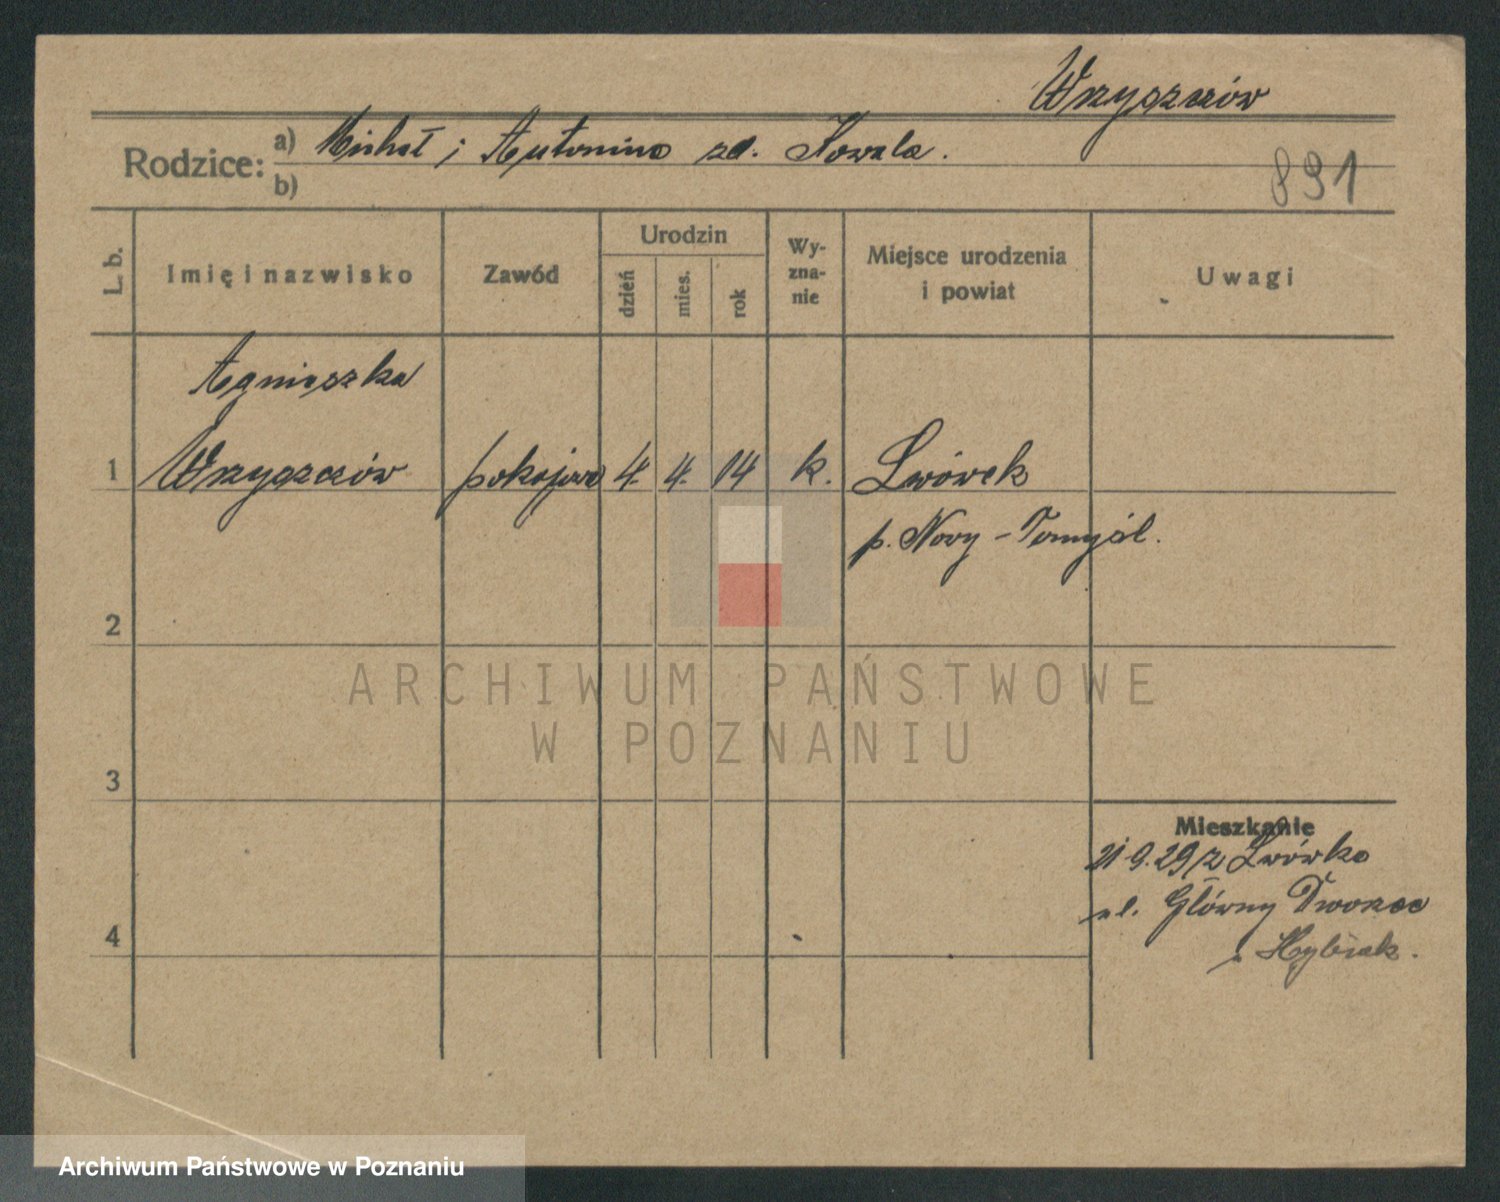 Wrzyszczów
Rodzice:
a) Michał i Antonina zd. Kowala.
b)
891
L. b.
Imię i nazwisko
Zawód
Urodzin
dzień
mies.
rok
Wy-
zna-
nie
Miejsce urodzenia
i powiat
Uwagi
Agnieszka
1 pokojowa 4. 4. 14 k. Lwówek
p. Nowy-Tomyśl.
2
3
4
Mieszkanie
21.9.29 z Lwówka
ul. Główny Dworzec
ARCHIWUM PAŃSTWOWE
W POZNANIU
Archiwum Państwowe w Poznaniu